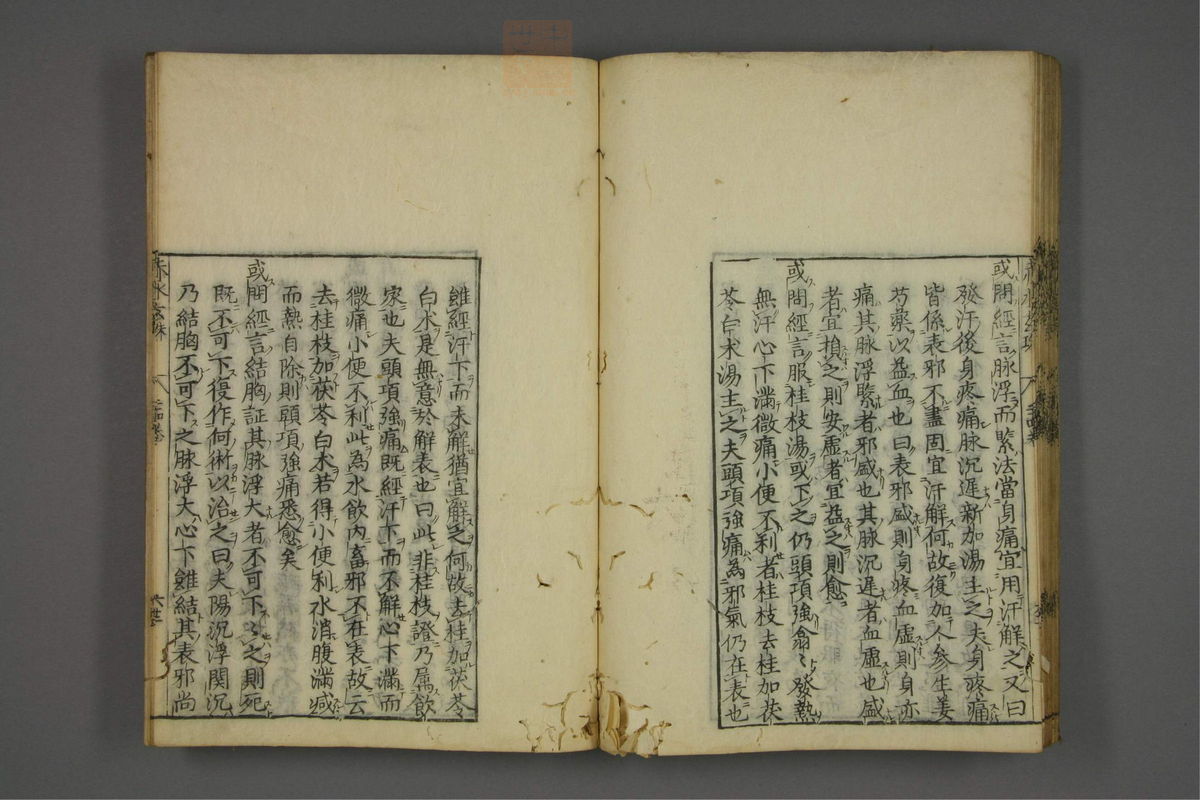 或問經言脉浮而緊法當身痛宜用汗解之又曰
發汗後身疼痛脉沉遲新加湯主之夫身疼痛
皆係表邪不盡固宜汗解何故復加人參生姜
芍藥以益血也曰表邪盛則身疼血虛則身亦
痛其脉浮緊者邪盛也其脉沉遲者血虛也盛
者宜損之則安虛者宜益之則愈
或問經言服桂枝湯或下之仍頭項強翕〻發熱
無汗心下滿微痛小便不利者桂枝去桂加茯
苓白术湯主之夫頭項強痛為邪氣仍在表也
雖經汗下而未解猶宜觧之何故去桂加茯苓
白术是無意於解表也曰此非桂枝證乃属飲
家也夫頭項強痛既經汗下而不解心下滿而
微痛小便不利此為水飲内畜邪不在表故云
去桂枝加茯苓白术若得小便利水消腹滿减
而熱自除則頭項強痛悉愈矣
或問經言結胸証其脉浮大者不可下〻之則死
既不可下復作何術以治之曰夫陽沉浮関沉
乃結胸不可下之脉浮大心下雖結其表邪尚
赤水玄珠